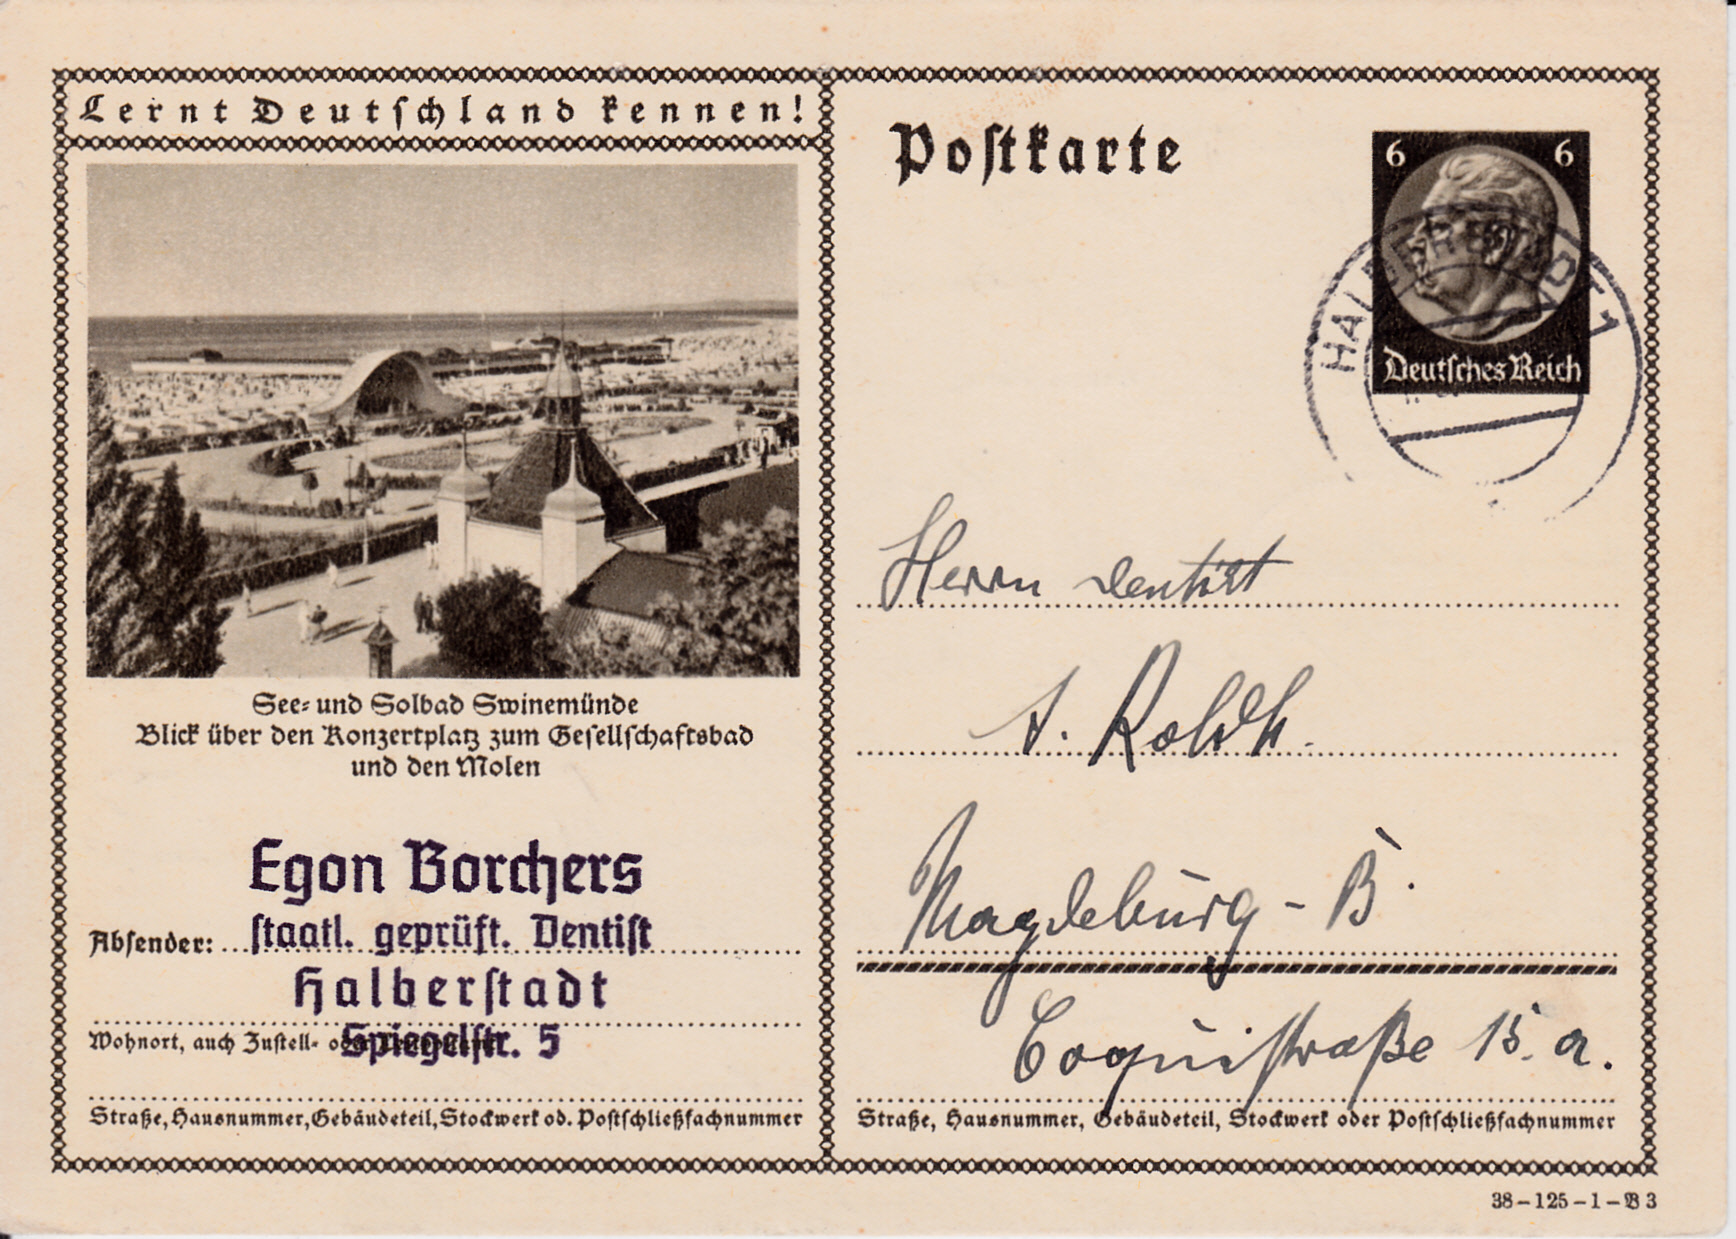 Lernt Deutschland kennen!
See- und Solbad Swinemünde
Blick über den Konzertplatz zum Gesellschaftsbad
und den Molen
Egon Borchers
Absender: staatl. geprüft. Dentist
Halberstadt
Wohnort, auch Zustell- oder
Spiegelstr. 5
Straße, Hausnummer, Gebäudeteil, Stockwerk od. Postschließfachnummer
Postkarte
6 6
Deutsches Reich
HALBERSTADT 1
Herrn Dentist
A.
Magdeburg - B.
Coquistraße 15. a.
Straße, Hausnummer, Gebäudeteil, Stockwerk oder Postschließfachnummer
38-125-1-B 3